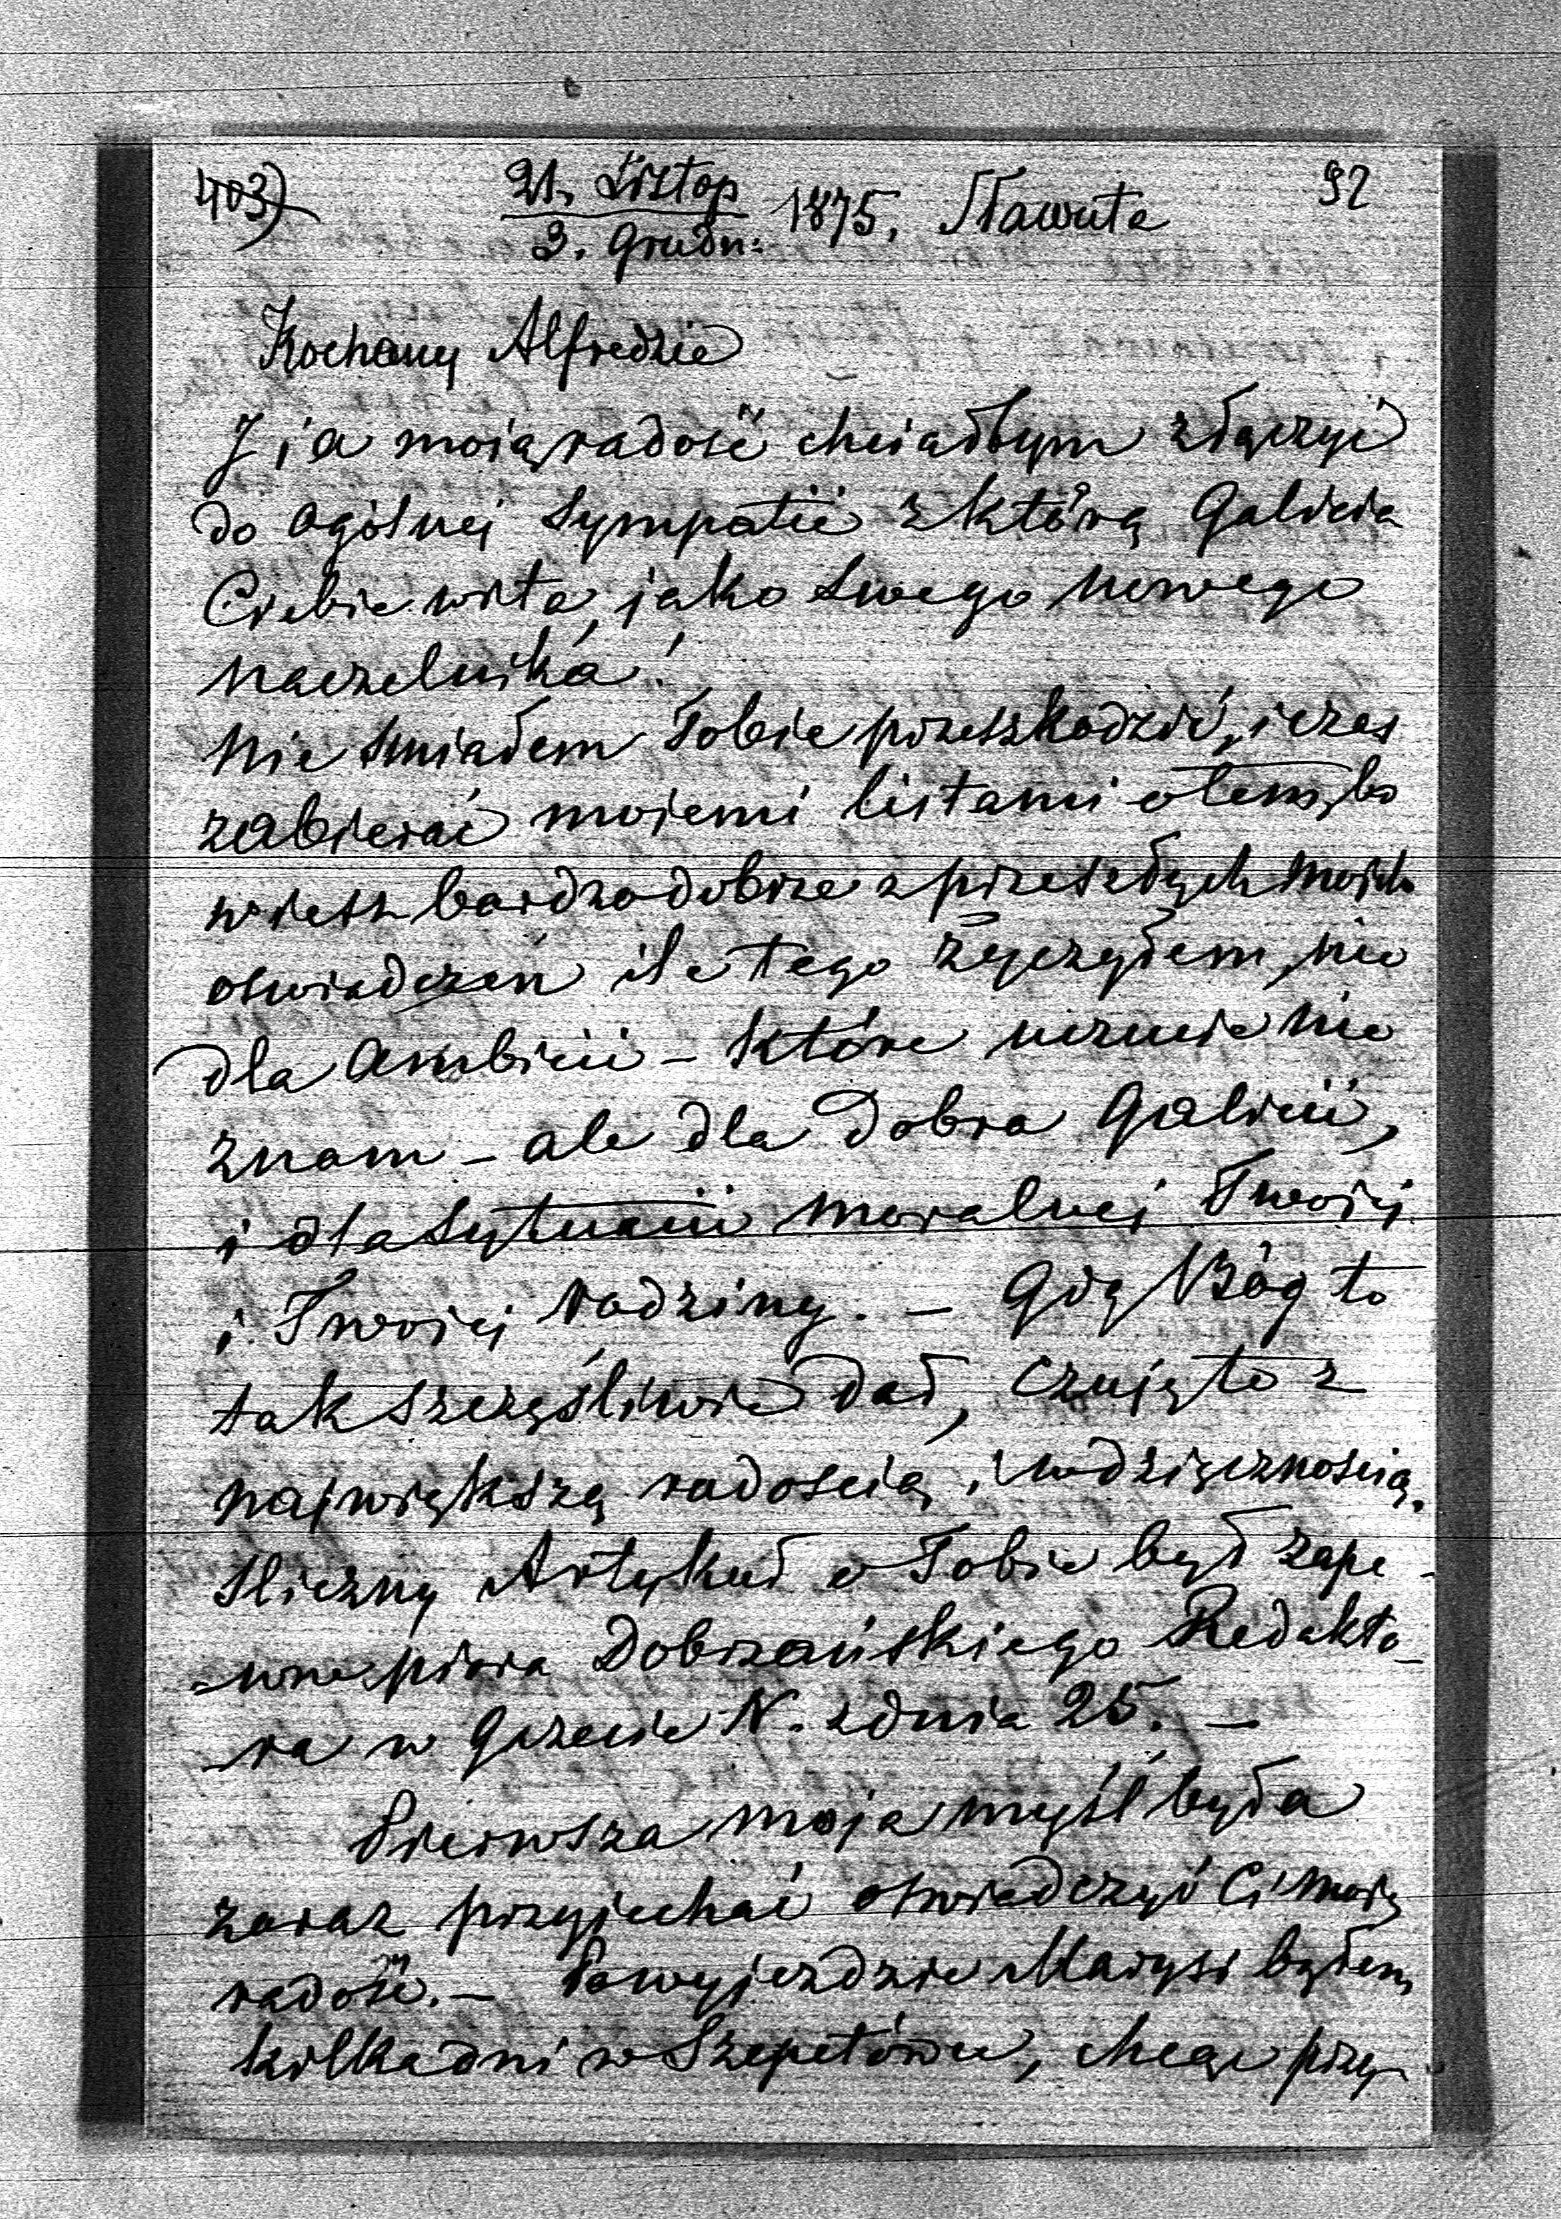 403) 21. Listop / 3. Grudn: 1875. Sławuta 92
Kochany Alfredzie
J ja moią radość chciałbym złączyć
do ogólnej sympatii z którą Galicia
Ciebie wita, jako swego nowego
naczelnika!
Nie śmiałem Tobie przeszkodzić, i czas
zabierać mojemi listami o tem, bo
wiesz bardzo dobrze z przeszłych moich
oświadczeń ile tego życzyłem, nie
dla ambicii – które uczucie nie
znam – ale dla dobra Galicii,
i dla sytuacii moralnej Twojej
i Twojej rodziny. – Gdy Bóg to
tak szczęśliwie dał, czuję to z
największą radością i wdzięcznością.
Śliczny Artykuł o Tobie był zape-
-wne pióra Dobrzańskiego Redakto-
-ra w Gazecie N. z dnia 25. –
Pierwsza moja myśl była
zaraz przyjechać oświadczyć Ci moię
radość. – Po wyjeździe Marysi byłem
kilka dni w Szepetówce, chcąc przy-